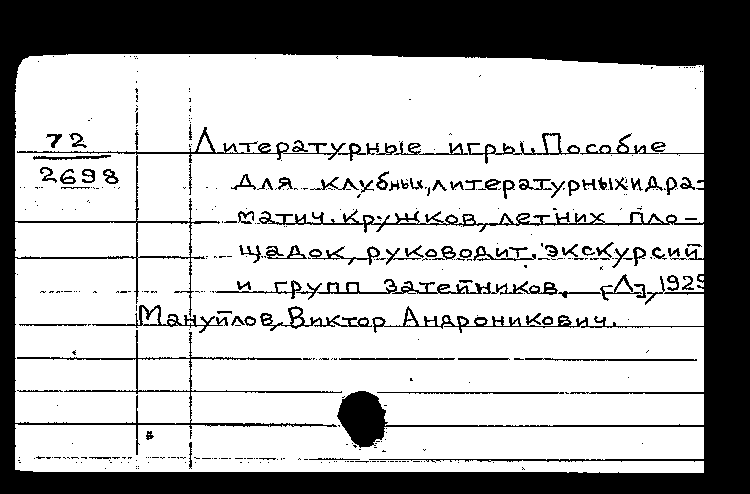 72
2698
Литературные игры. Пособие
для клубных, литературных и дра-
матич. кружков, летних пло-
щадок, руководит. экскурсий
и групп затейников. [Л], 1925
Мануйлов, Виктор Андроникович.